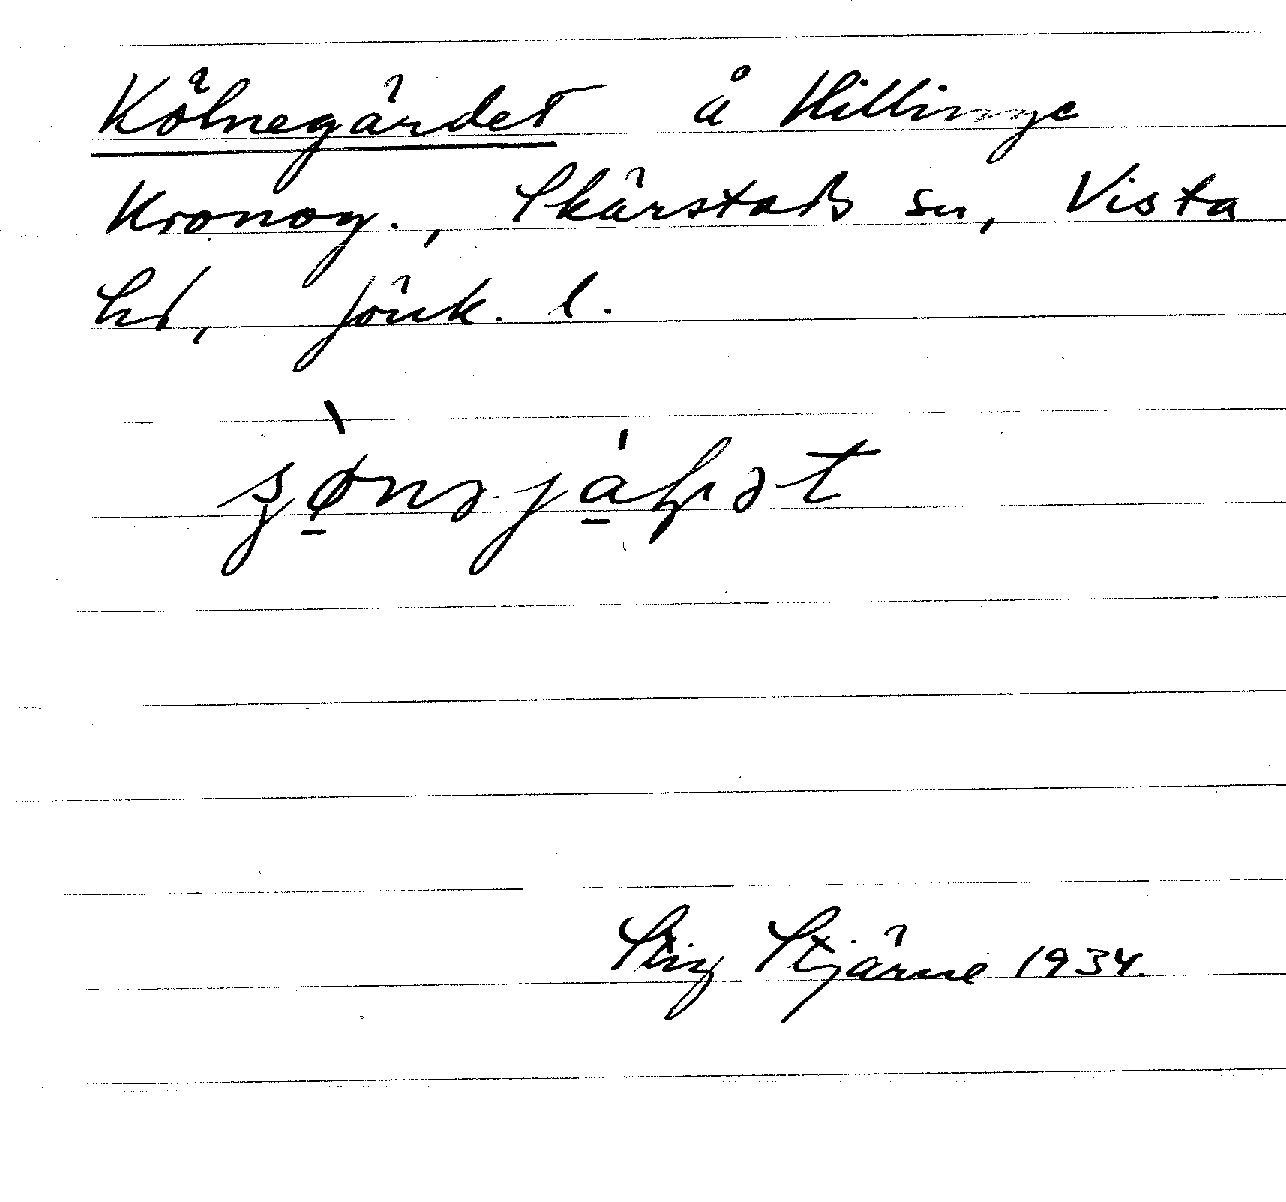 Kölnegärdet å Hillinge
Kronog., Skärstads sn, Vista
hd, Jönk. l.
Stig Stjärne 1934.